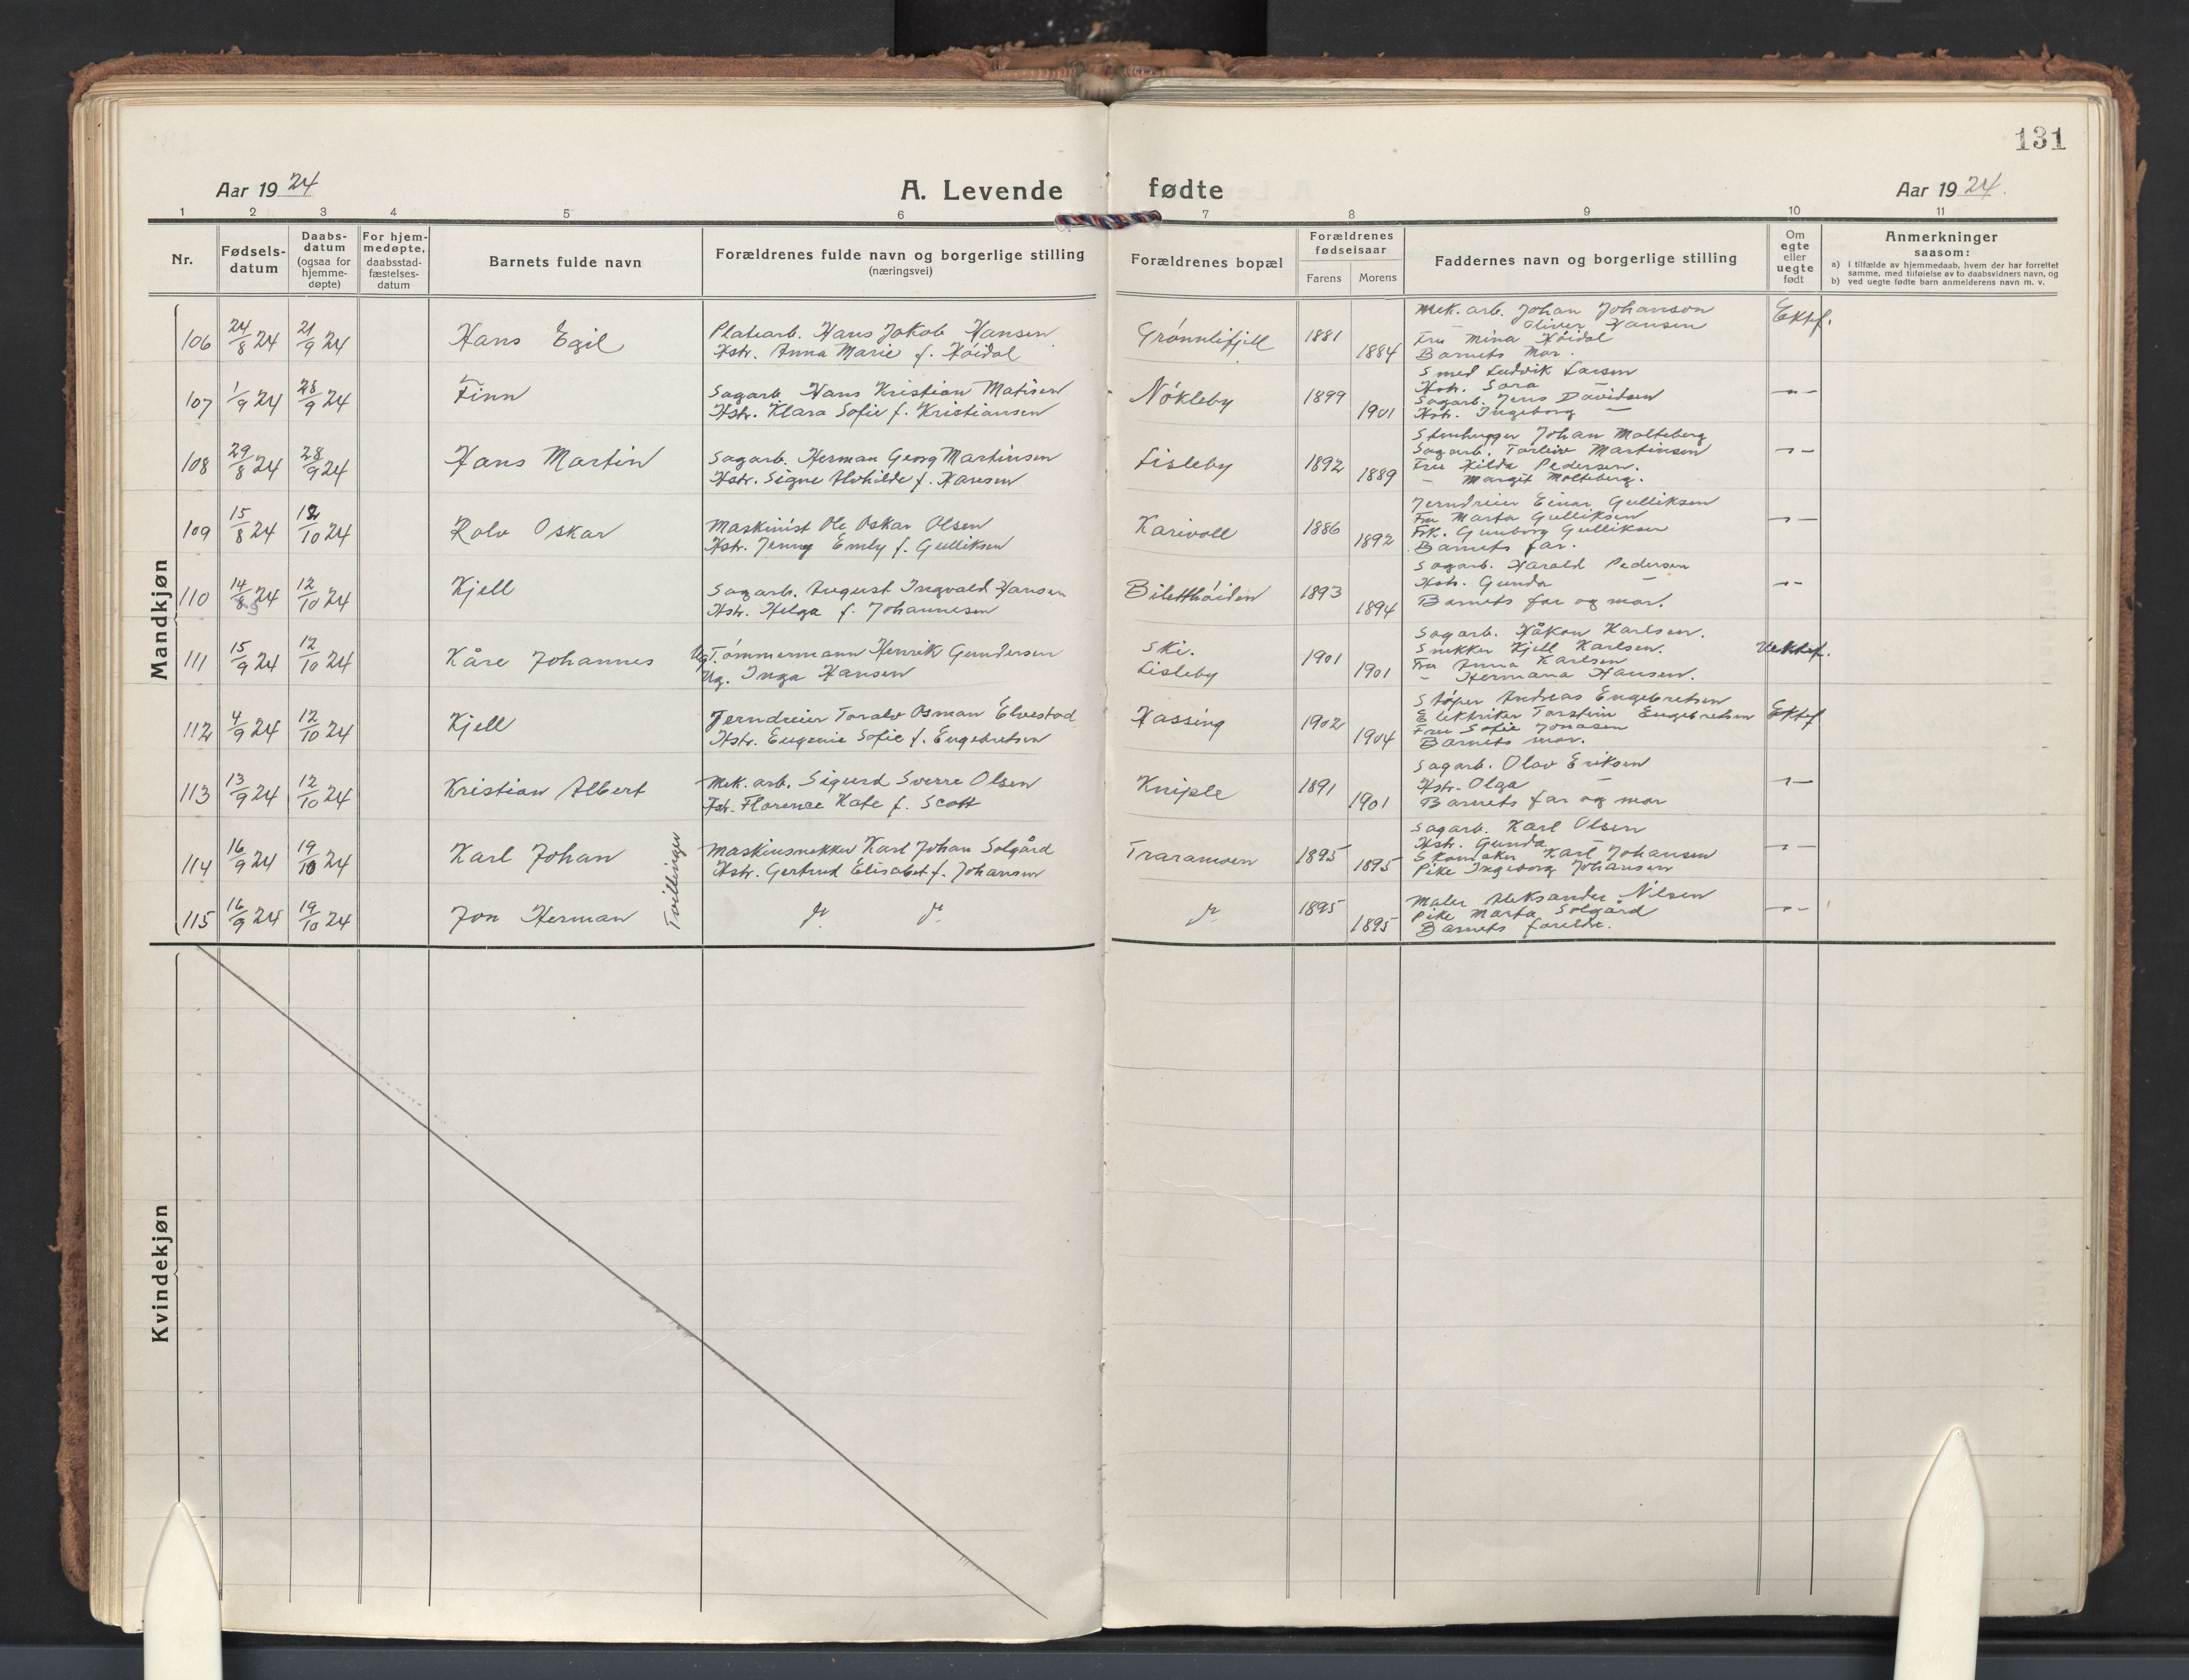 131
Aar 1924
A. Levende fødte
Aar 1924.
1 2 3 4 5 6 7 8 9 10 11
Nr.
Fødsels-
datum
Daabs-
datum
(ogsaa for
hjemme-
døpte)
For hjem-
medøpte,
daabsstad-
fæstelses-
datum
Barnets fulde navn
Forældrenes fulde navn og borgerlige stilling
(næringsvei)
Forældrenes bopæl
Forældrenes
fødselsaar
Farens Morens
Faddernes navn og borgerlige stilling
Om
egte
eller
uegte
født
Anmerkninger
saasom:
a) i tilfælde av hjemmedaab, hvem der har forrettet
samme, med tilføielse av to daabsvidners navn, og
b) ved uegte fødte barn anmelderens navn m. v.
Mandkjøn
106 24/8 24 21/9 24 Hans Egil
Platearb. Hans Jakob Hansen
Hstr. Anna Marie f. Høidal
Grønnlifjell 1881 1884
Mek. arb. Johan Johanson
— Oliver Hansen
Fru Mina Høidal
Barnets Mor.
Ektef.
107 1/9 24 28/9 24 Finn
Sagarb. Hans Kristian Matisen
Hstr. Klara Sofie f. Kristiansen
Nøkleby 1899 1901
Smed Ludvik Larsen
Hstr. Sara —
Sagarb. Jens Davidsen
Hstr. Ingeborg —
—"—
108 29/8 24 28/9 24 Hans Martin
Sagarb. Herman Georg Martinsen
Hstr. Signe Alvhilde f. Hansen
Lisleby 1892 1889
Stenhugger Johan Molteberg
Sagarb. Torleiv Martinsen
Fru Hilda Pedersen.
— Margit Molteberg.
—"—
109 15/8 24 12/10 24 Rolv Oskar
Maskinist Ole Oskar Olsen
Hstr. Jenny Emly f. Gulliksen
Karivoll 1886 1892
Jerndreier Einar Gulliksen
Fru Marta Gulliksen
Frk. Gunborg Gulliksen
Barnets far.
—"—
110 14/8 24 9 12/10 24 Kjell
Sagarb. August Ingvald Hansen
Hstr. Helga f. Johannesen
Biletthøiden 1893 1894
Sagarb. Harald Pedersen
Hstr. Gunda —
Barnets far og mor.
—"—
111 15/9 24 12/10 24 Kåre Johannes
Ug. Tømmermann Henrik Gundersen
Ug. Inga Hansen
Ski.
Lisleby
1901 1901
Sagarb. Håkon Karlsen.
Snekker Kjell Karlsen.
Fru Anna Karlsen
— Hermana Hansen.
Uektef.
112 4/9 24 12/10 24 Kjell
Jerndreier Toralv Osman Elvestad
Hstr. Eugenie Sofie f. Engebretsen
Hassing 1902 1904
Støper Andreas Engebretsen
Elektriker Torstein Engebretsen
Fru Sofie Jonasen
Barnets mor.
Ektef
113 13/9 24 12/10 24 Kristian Albert
Mek. arb. Sigurd Sverre Olsen
Hstr. Florence Kate f. Scott
Kniple 1891 1901
Sagarb. Olav Eriksen
Hstr. Olga —
Barnets far og mor
—"—
114 16/9 24 19/10 24 Karl Johan
Tvillinger
Maskinsnekker Karl Johan Solgård
Hstr. Gertrud Elisabet f. Johansen
Traramoen 1895 1895
Sagarb. Karl Olsen
Hstr. Gunda —
Skomaker Karl Johansen
Pike Ingeborg Johansen
—"—
115 16/9 24 19/10 24 Jon Herman
1895 1895
Maler Aleksander Nilsen
Pike Marta Solgård
Barnets foreldre.
—"—
Kvindekjøn